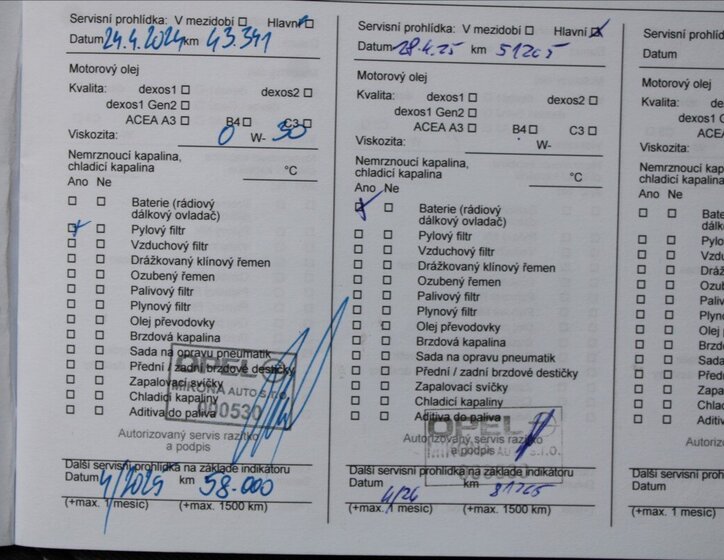 Servisní prohlídka: V mezidobí ☐ Hlavní ☒
Datum 24.4.2024 km 43.341
Motorový olej
Kvalita: dexos1 ☐ dexos2 ☐
dexos1 Gen2 ☐
ACEA A3 ☐ B4 ☐ C3 ☐
Viskozita: 0 W- 30
Nemrznoucí kapalina,
chladicí kapalina °C
Ano Ne
☐ ☐ Baterie (rádiový
dálkový ovladač)
☒ ☐ Pylový filtr
☐ ☐ Vzduchový filtr
☐ ☐ Drážkovaný klínový řemen
☐ ☐ Ozubený řemen
☐ ☐ Palivový filtr
☐ ☐ Plynový filtr
☐ ☐ Olej převodovky
☐ ☐ Brzdová kapalina
☐ ☐ Sada na opravu pneumatik
☐ ☐ Přední / zadní brzdové destičky
☐ ☐ Zapalovací svíčky
☐ ☐ Chladicí kapalina
☐ ☐ Aditiva do paliva
OPEL
MIRONA AUTO s.r.o.
000530
Autorizovaný servis razítko
a podpis
Další servisní prohlídka na základě indikátoru
Datum 4/2025 km 58.000
(+max. 1 měsíc) (+max. 1500 km)
Servisní prohlídka: V mezidobí ☐ Hlavní ☒
Datum 28.4.25 km 51265
Motorový olej
Kvalita: dexos1 ☐ dexos2 ☐
dexos1 Gen2 ☐
ACEA A3 ☐ B4 ☐ C3 ☐
Viskozita: W-
Nemrznoucí kapalina,
chladicí kapalina °C
Ano Ne
☒ ☐ Baterie (rádiový
dálkový ovladač)
☐ ☐ Pylový filtr
☐ ☐ Vzduchový filtr
☐ ☐ Drážkovaný klínový řemen
☐ ☐ Ozubený řemen
☐ ☐ Palivový filtr
☐ ☐ Plynový filtr
☐ ☐ Olej převodovky
☐ ☐ Brzdová kapalina
☐ ☐ Sada na opravu pneumatik
☐ ☐ Přední / zadní brzdové destičky
☐ ☐ Zapalovací svíčky
☐ ☐ Chladicí kapalina
☐ ☐ Aditiva do paliva
OPEL
Autorizovaný servis razítko
a podpis
Další servisní prohlídka na základě indikátoru
Datum 4/26 km 81265
(+max. 1 měsíc) (+max. 1500 km)
Servisní prohlíd
Datum
Motorový olej
Kvalita: de
dexos1 G
ACEA
Viskozita:
Nemrznoucí kapa
chladicí kapalina
Ano Ne
☐ ☐ Bater
dálko
☐ ☐ Pylov
☐ ☐ Vzdu
☐ ☐ Dráž
☐ ☐ Ozub
☐ ☐ Paliv
☐ ☐ Plyno
☐ ☐ Olej
☐ ☐ Brzd
☐ ☐ Sada
☐ ☐ Před
☐ ☐ Zapa
☐ ☐ Chlad
☐ ☐ Aditiv
Autoriz
Další servisní proh
Datum
(+max. 1 měsíc)